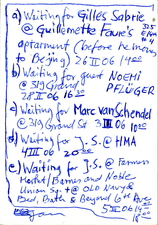 a) Waiting for Gilles Sabrie
@ Guillemette Faure's
apartment (before he moves
to Beijing) 26 II 06 14 00
b) Waiting for guest NOEMI
@ 319 Grand St PFLÜGER
28 II 06 16 30
c) Waiting for Marc van Schendel
@ 319 Grand St 3 III 06 10 20
d) Waiting for J.S. @ HMA
4 III 06 20 30
e) Waiting for J.S. @ Farmers
Market/Barnes and Noble
Union Sq + @ OLD NAVY &
Bed, Bath & Beyond 6th Ave
5 III 06